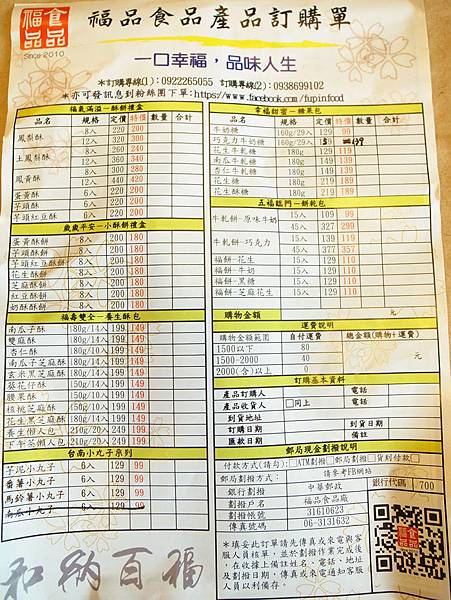 食品福品
Since 2010
福品食品產品訂購單
一口幸福，品味人生
＊訂購專線(1)：0922265055 訂購專線(2)：0938699102
＊亦可發訊息到粉絲團下單:https://www.facebook.com/fupinfood
福氣滿溢－酥餅禮盒
品名 規格 定價 特價 數量 合計
鳳梨酥 8入 220 200
12入 320 300
土鳳梨酥 8入 260 240
12入 360 340
鳳黃酥 8入 300 280
12入 440 420
蛋黃酥 6入 220 200
芋頭酥 6入 220 200
芋頭紅豆酥 6入 220 200
歲歲平安－小酥餅禮盒
蛋黃酥餅 8入 200 180
芋頭酥餅 8入 200 180
芋頭紅豆酥餅 8入 200 180
花生酥餅 8入 200 180
芝麻酥餅 8入 200 180
紅豆酥餅 8入 200 180
奶酥酥餅 8入 200 180
福壽雙全－養生酥包
南瓜子酥 180g/14入 199 149
雙麻酥 180g/14入 199 149
杏仁酥 180g/14入 199 149
南瓜子芝麻酥 180g/14入 199 149
玄米黑芝麻酥 180g/14入 199 149
葵花仔酥 180g/14入 199 149
腰果酥 180g/14入 199 149
核桃芝麻酥 150g/10入 199 149
花生黑芝麻酥 180g/14入 199 149
養生懶人包 210g/20入 249 199
下午茶懶人包 240g/20入 249 199
台南小丸子系列
芋泥小丸子 6入 129 99
番薯小丸子 6入 129 99
馬鈴薯小丸子 6入 129 99
南瓜小丸子 6入 129 99
和納百福
幸福甜蜜－糖果包
品名 規格 定價 特價 數量 合計
牛奶糖 160g/29入 129 99
巧克力牛奶糖 160g/29入
花生牛軋糖 180g 139 110
南瓜牛軋糖 180g 209 179
杏仁牛軋糖 180g 209 179
花生糖 180g 219 189
花生酥糖 180g 219 189
五福臨門－餅乾包
牛軋餅-原味牛奶 15入 109 99
45入 327 299
牛軋餅-巧克力 15入 139 119
45入 377 357
福餅-花生 15入 129 110
福餅-牛奶 15入 129 110
福餅-黑糖 15入 129 110
福餅-芝麻花生 15入 129 110
購物金額 元
運費說明
購物金額範圍 自付運費 總金額(購物+運費)
1500以下 80
1500-2000 40
2000(含)以上 0 元
訂購基本資料
產品訂購人 電話
產品收貨人 □同上 電話
到貨地址
訂購日期 到貨日期
匯款日期 備註
郵局現金劃撥資料
付款方式(請勾):□ATM劃撥□郵局劃撥□貨到付款
郵局劃撥方式: 請參考FB網站
銀行劃撥 中華郵政 銀行代碼 700
劃撥戶名 福品食品廠
劃撥帳號 31610623
傳真號碼 06-3131632
＊填妥此訂單請先傳真或來電與客
服人員核單，並於劃撥作業完成後，
在收據上備註姓名、電話、地址
及劃撥日期，傳真或來電通知客服
人員以利備存。
食品福品